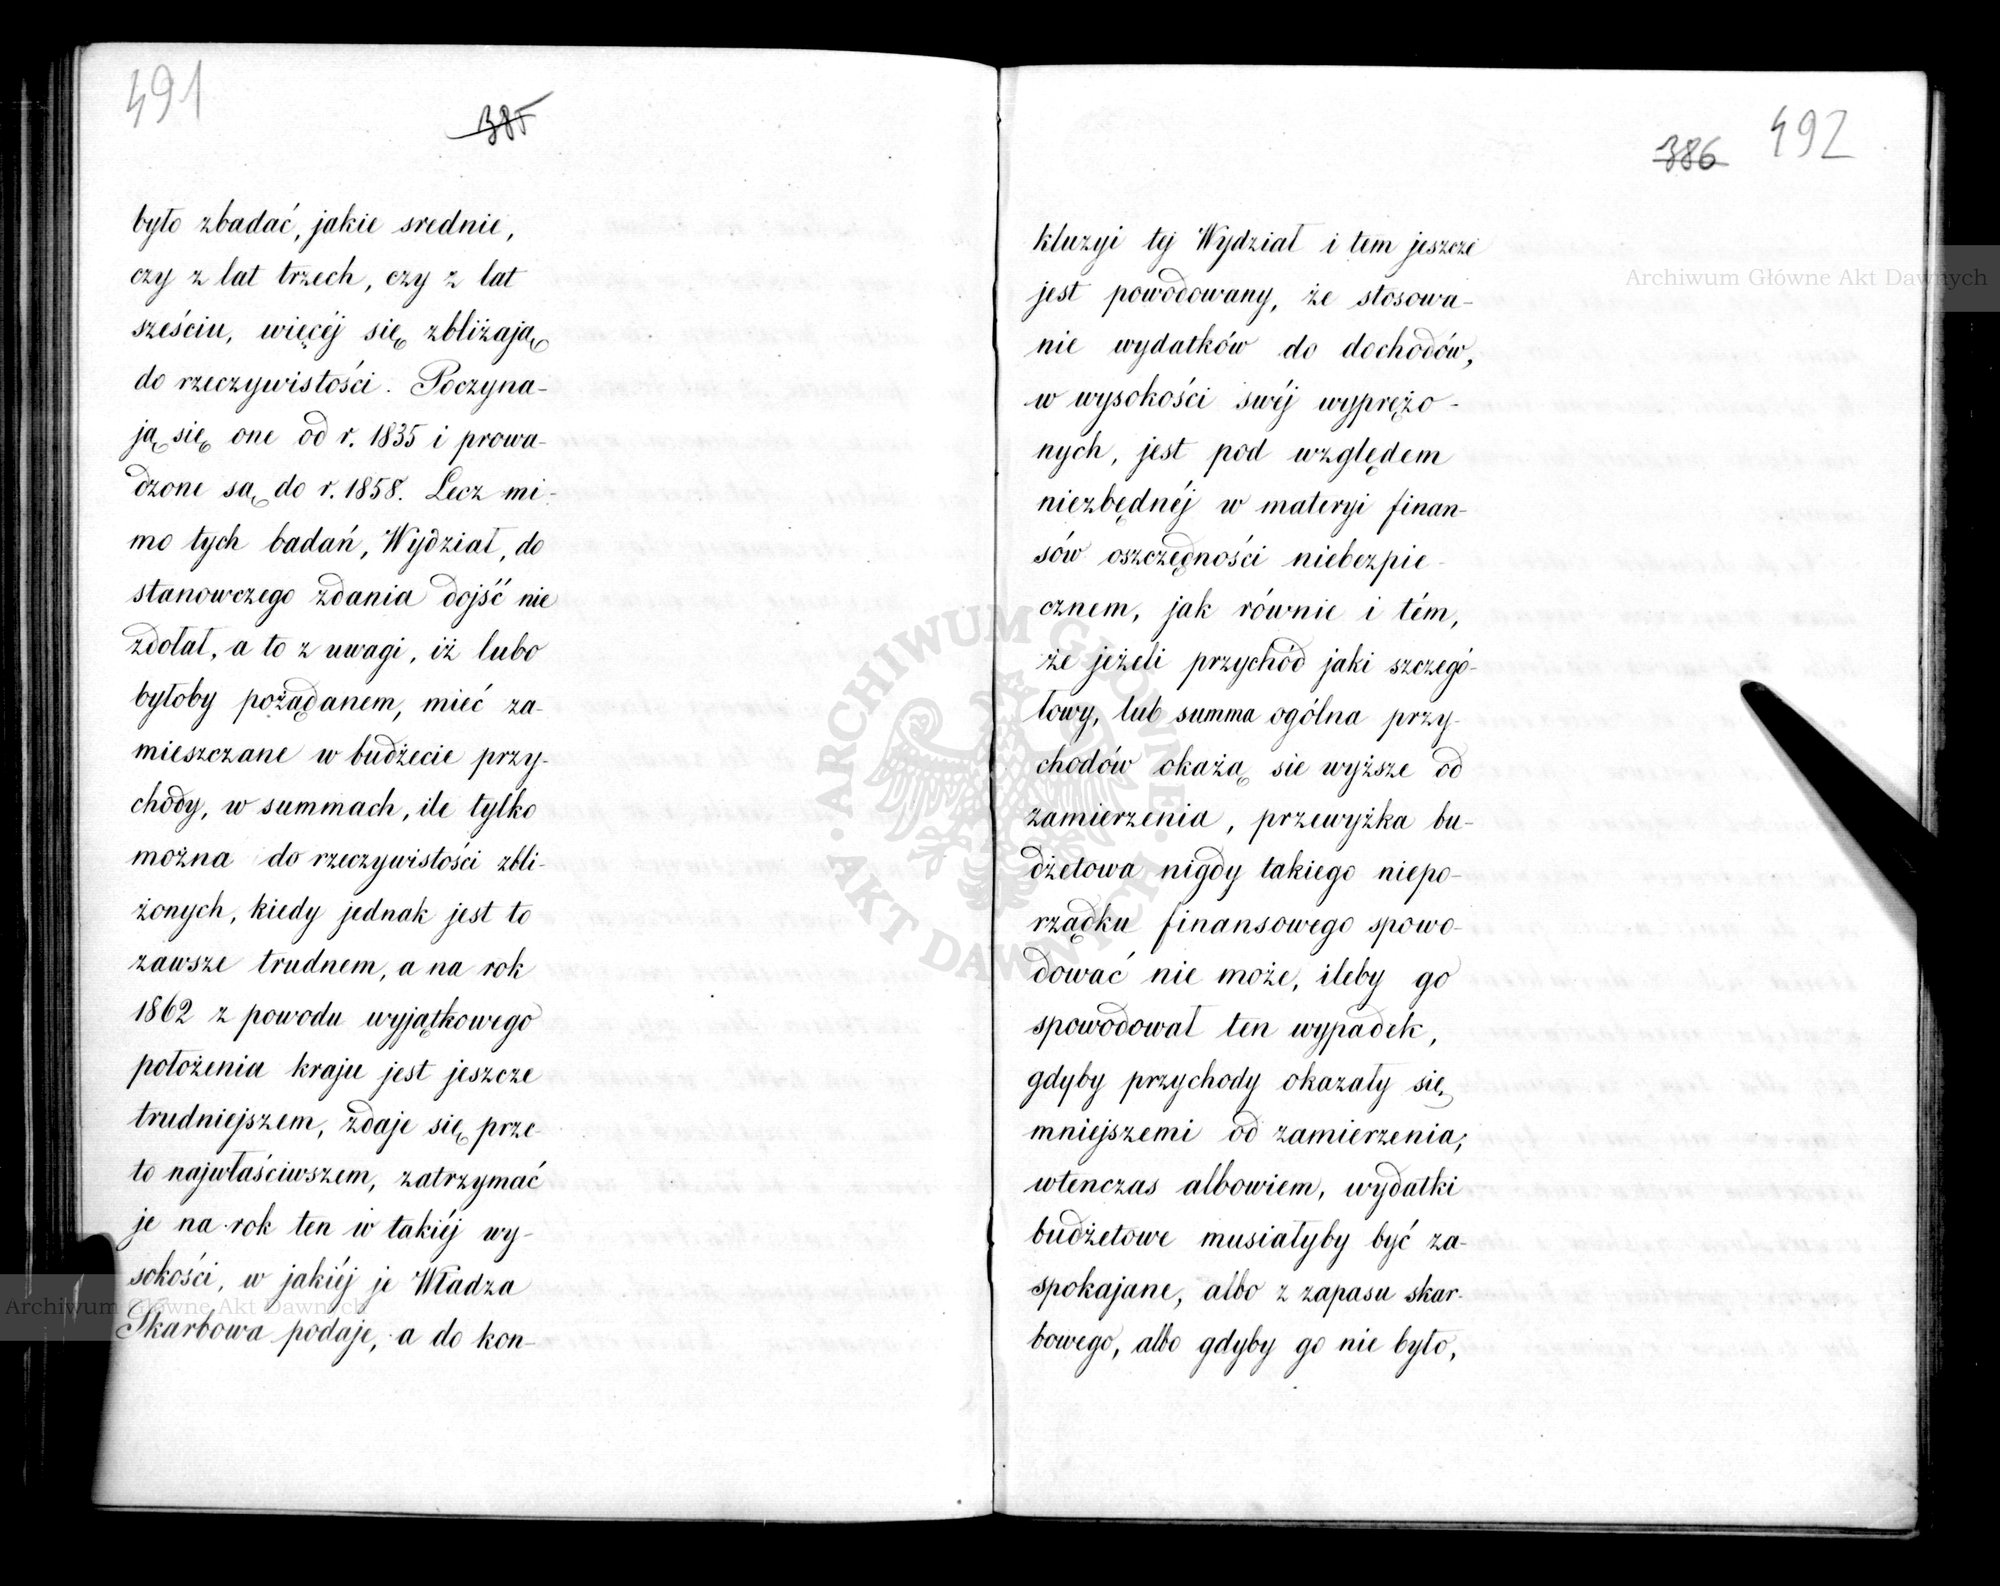 491
385
było zbadać, jakie srednie,
czy z lat trzech, czy z lat
sześciu, więcéj się zbliżają
do rzeczywistości. Poczyna-
ją się one od r. 1835 i prowa-
dzone są do r. 1858. Lecz mi-
mo tych badań, Wydział, do
stanowczego zdania dojść nie
zdołał, a to z uwagi, iż lubo
byłoby pożądanem, mieć za-
mieszczane w budżecie przy-
chody, w summach, ile tylko
można do rzeczywistości zbli-
żonych, kiedy jednak jest to
zawsze trudnem, a na rok
1862 z powodu wyjątkowego
położenia kraju jest jeszcze
trudniejszem, zdaje się prze-
to najwłaściwszem, zatrzymać
je na rok ten w takiéj wy-
sokości, w jakiéj je Władza
Skarbowa podaje, a do kon-
386
492
kluzyi tej Wydział i tem jeszcze
jest powodowany, że stosowa-
nie wydatków do dochodów,
w wysokości swéj wypręźo-
nych, jest pod względem
niezbędnéj w materyi finan-
sów oszczędności niebezpie-
cznem, jak równie i tém,
że jeżeli przychód jaki szczegó-
łowy, lub summa ogólna przy-
chodów okażą sie wyższe od
zamierzenia, przewyżka bu-
dżetowa nigdy takiego niepo-
rządku finansowego spowo-
dować nie może, ileby go
spowodował ten wypadek,
gdyby przychody okazały się
mniejszemi od zamierzenia;
wtenczas albowiem, wydatki
budżetowe musiałyby być za-
spokajane, albo z zapasu skar-
bowego, albo gdyby go nie było,
Archiwum Główne Akt Dawnych
Archiwum Główne Akt Dawnych
ARCHIWUM GŁÓWNE AKT DAWNYCH